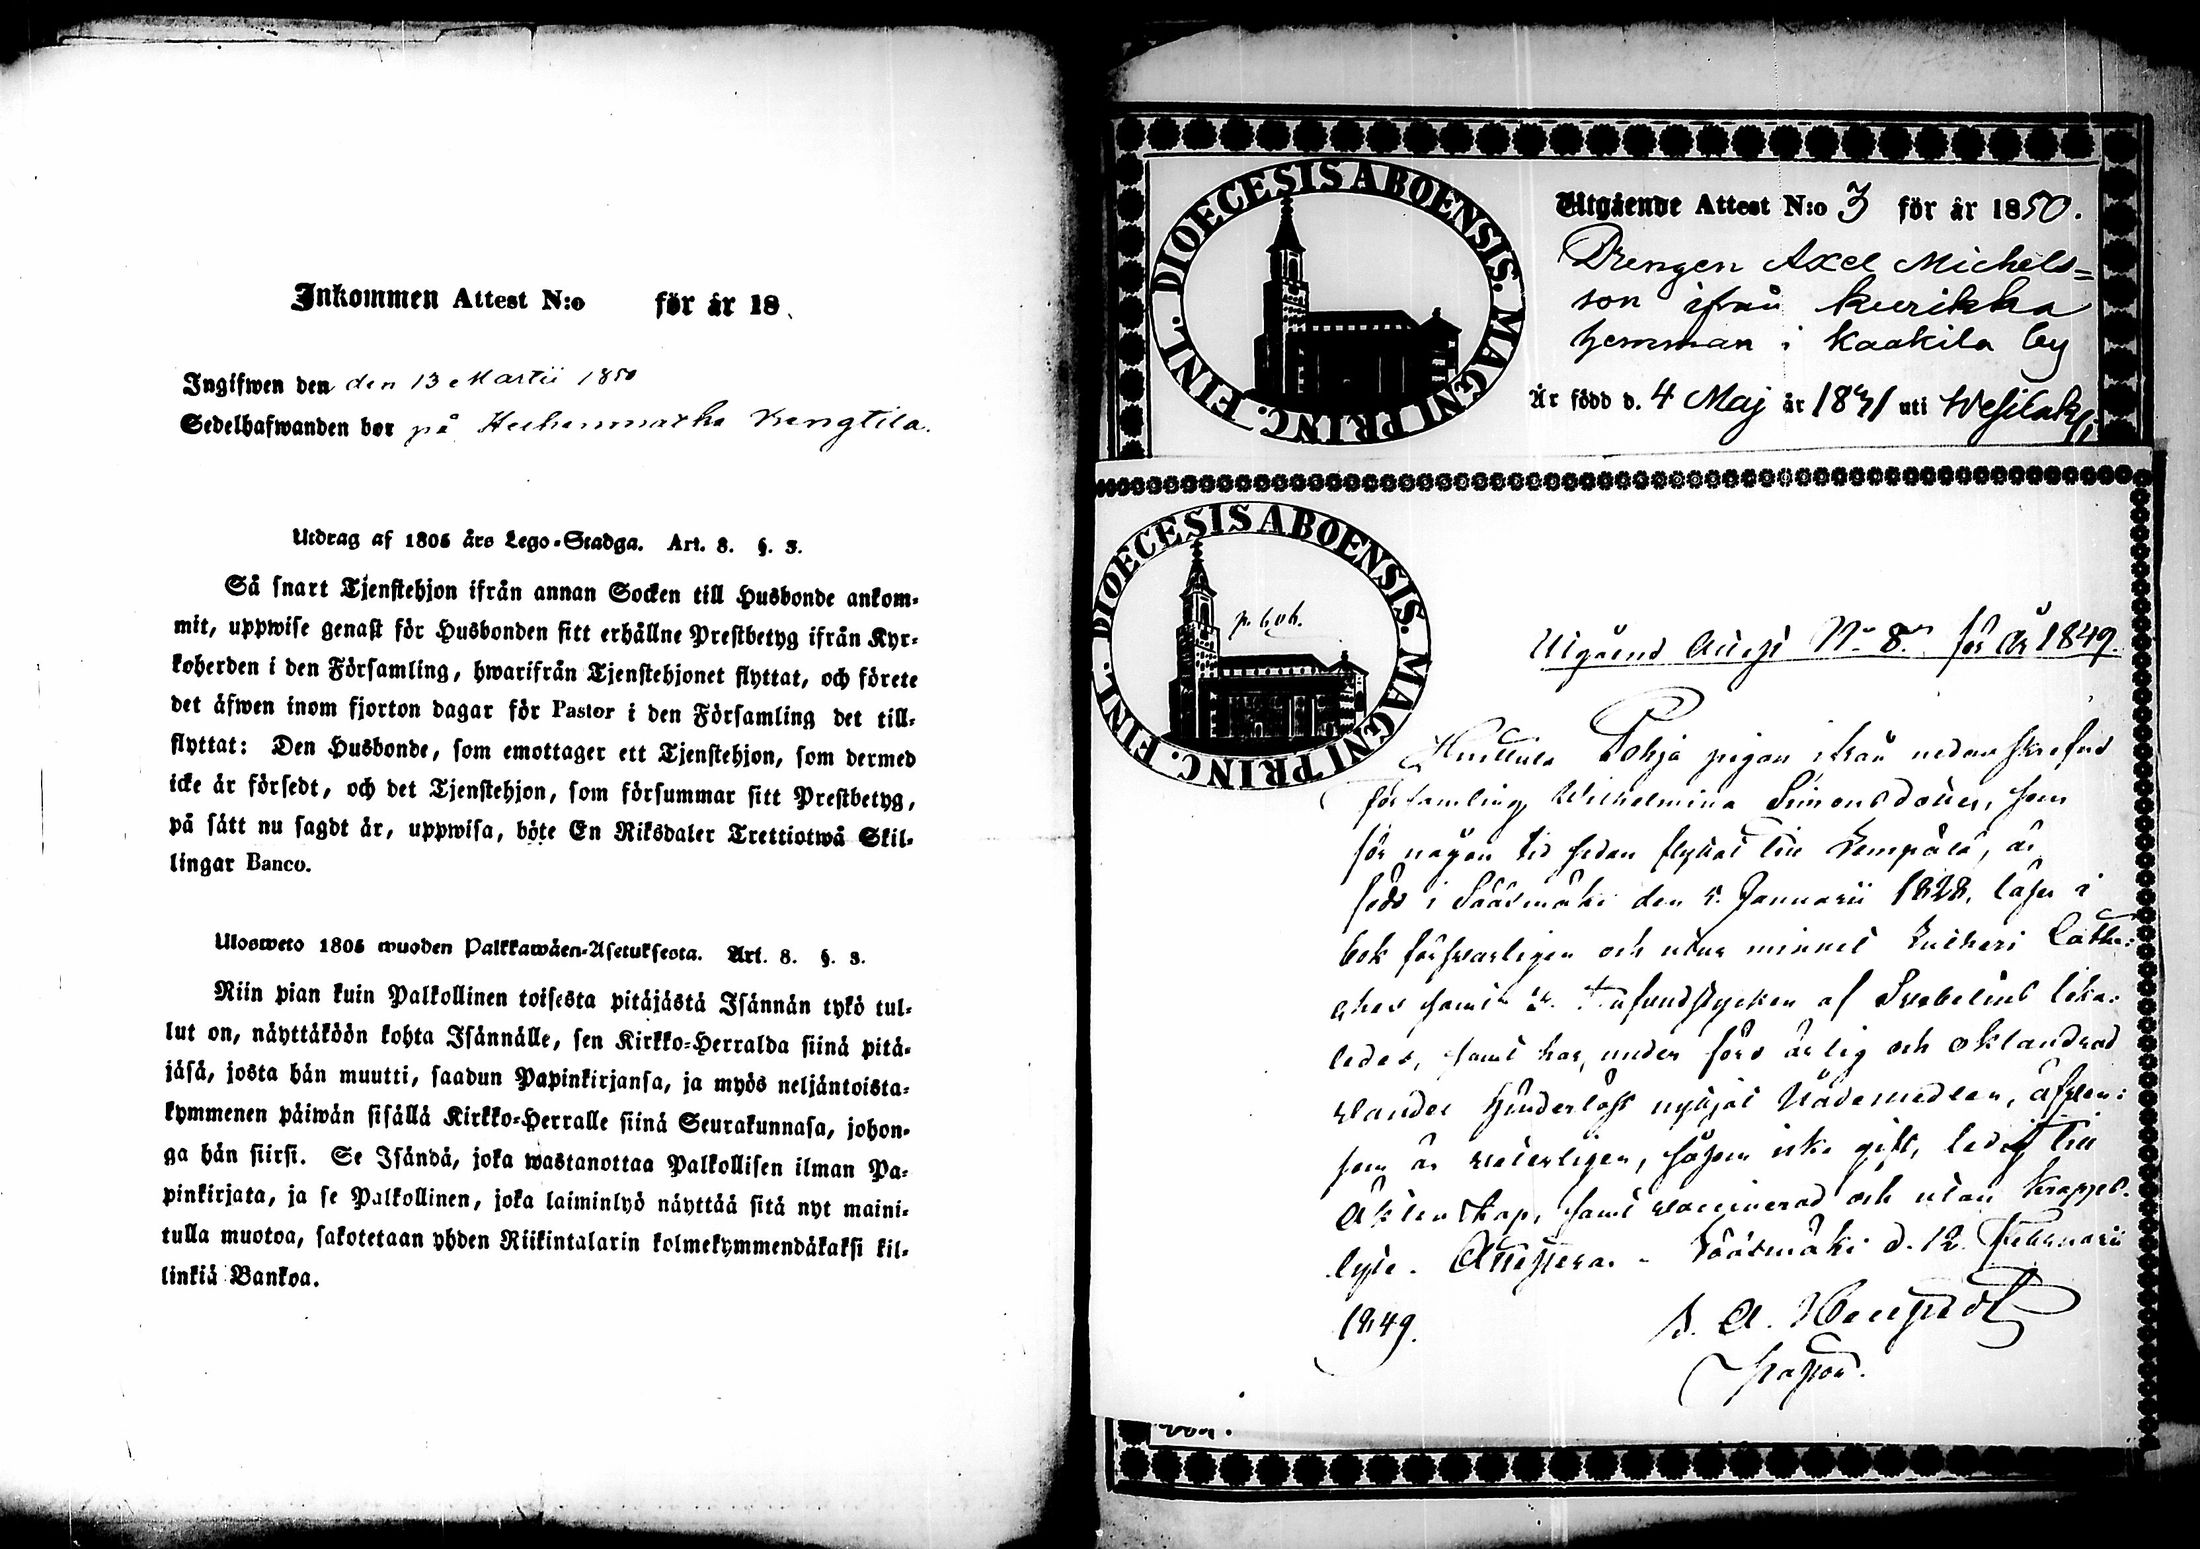 Inkommen Attest N:o för år 18
Ingifwen den den 13 Martii 1850
Sedelhafwanden bor på
Utdrag af 1805 års Lego-Stadga. Art. 8. §. 3.
Så snart Tjenstehjon ifrån annan Socken till Husbonde ankom-
mit, uppwise genast för Husbonden sitt erhållne Prestbetyg ifrån Kyr-
koherden i den Församling, hwarifrån Tjenstehjonet flyttat, och förete
det äfwen inom fjorton dagar för Pastor i den Församling det till-
flyttat: Den Husbonde, som emottager ett Tjenstehjon, som dermed
icke är försedt, och det Tjenstehjon, som försummar sitt Prestbetyg,
på sätt nu sagdt är, uppwisa, böte En Riksdaler Trettiotwå Skil-
lingar Banco.
Ulosweto 1805 wuoden Palkkawäen-Asetuksesta. Art. 8. §. 3.
Niin pian kuin Palkollinen toisesta pitäjästä Isännän tykö tul-
lut on, näyttäköön kohta Isännälle, sen Kirkko-Herralda siinä pitä-
jäsä, josta hän muutti, saadun Papinkirjansa, ja myös neljäntoista-
kymmenen päiwän sisällä Kirkko-Herralle siinä Seurakunnasa, johon-
ga hän siirsi. Se Isändä, joka wastanottaa Palkollisen ilman Pa-
pinkirjata, ja se Palkollinen, joka laiminlyö näyttää sitä nyt maini-
tulla muotoa, sakotetaan yhden Riikintalarin kolmekymmendäkaksi kil-
linkiä Bankoa.
DIOECESIS ABOENSIS. MAGNI PRINC. FINL.
Utgående Attest N:o 3 för år 1850.
Drengen Axel Michels=
son ifrån Kurikka
hemman i Kaakila by
Är född d. 4 Maj år 18 uti Wesilaks
DIOECESIS ABOENSIS. MAGNI PRINC. FINL.
Utgåend Attest No 8 för År 1849.
Huittula Pohja pigan ifrån nedanskrefne
församling Wilhelmina Simonsdotter, som
för någon tid sedan flyttat till Lempälä, är
född i Sääxmäki den 5 Januarii 1828, läser i
bok försvarligen och utur minnet Lutheri Cathe:
ches samt 2 af Svebelius löka:
ledes, samt har, under förd ärlig och oklandrad
vandel hinderlöst nyttjat Nådemedlen, äfven:
som är veterligen, såsom icke gift, ledig till
Äktenskap, samt vaccinerad och utan kropps-
lyte. Attesterar. Sääxmäki d. 12 Februarii
1849.
Pastor.